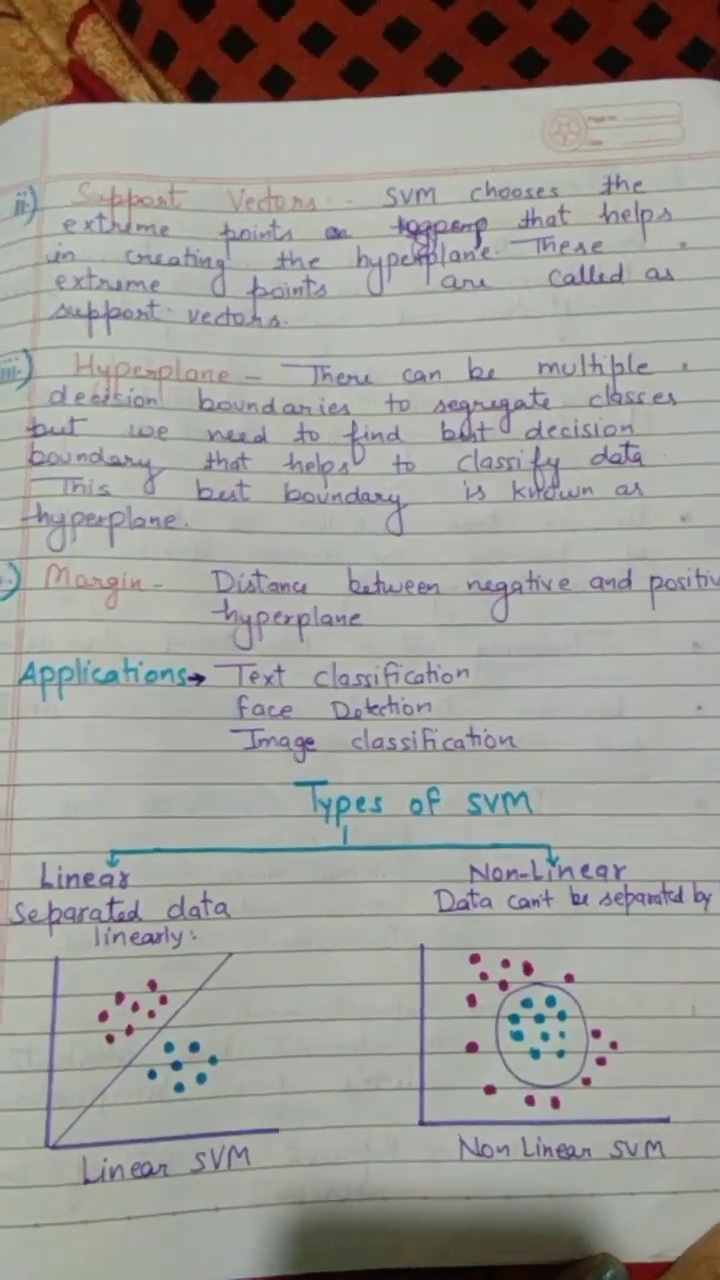 ii) Support Vectors - SVM chooses the
extreme points that helps
in creating the hyperplane. These
extreme points are called as
support vectors.
iii) Hyperplane - There can be multiple
decision boundaries to segregate classes
but we need to find best decision
boundary that helps to classify data
This best boundary is known as
hyperplane.
Margin - Distance between negative and positiv
hyperplane
Applications→ Text classification
Face Detection
Image classification
Types of SVM
Linear
Separated data
linearly:
Non-Linear
Data can't be separated by
Linear SVM
Non Linear SVM